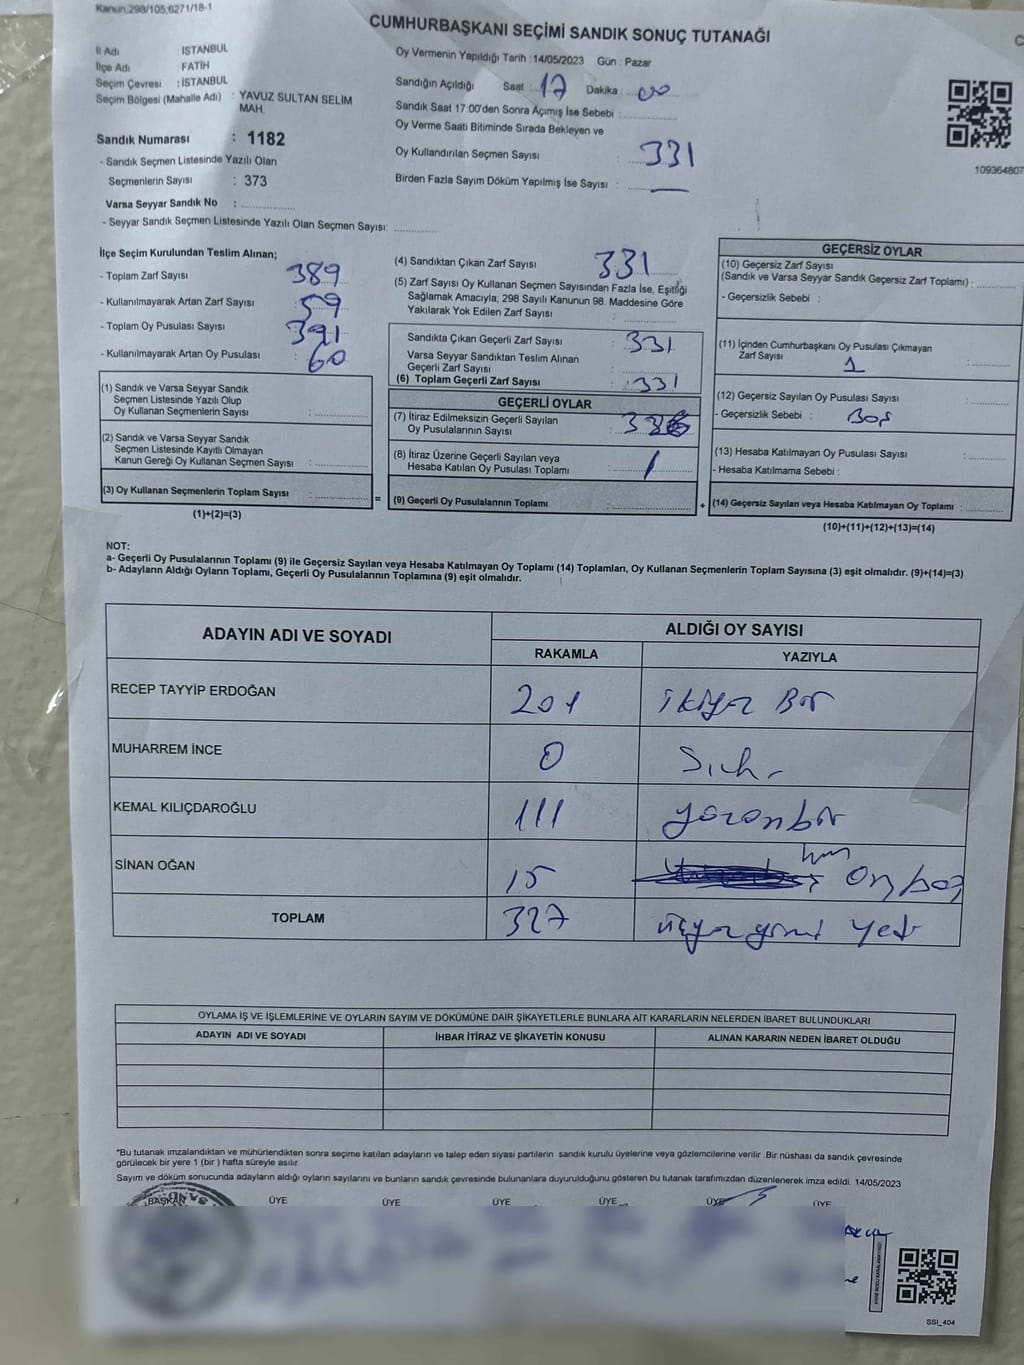 Kanun:298/105,6271/18-1
CUMHURBAŞKANI SEÇİMİ SANDIK SONUÇ TUTANAĞI
İl Adı : İSTANBUL
İlçe Adı : FATİH
Seçim Çevresi : İSTANBUL
Seçim Bölgesi (Mahalle Adı) : YAVUZ SULTAN SELİM
MAH.
Sandık Numarası : 1182
- Sandık Seçmen Listesinde Yazılı Olan
Seçmenlerin Sayısı : 373
Varsa Seyyar Sandık No :
- Seyyar Sandık Seçmen Listesinde Yazılı Olan Seçmen Sayısı:
Oy Vermenin Yapıldığı Tarih : 14/05/2023 Gün : Pazar
Sandığın Açıldığı Saat : 17 Dakika : 00
Sandık Saat 17:00'den Sonra Açımış İse Sebebi :
Oy Verme Saati Bitiminde Sırada Bekleyen ve
Oy Kullandırılan Seçmen Sayısı : 331
Birden Fazla Sayım Döküm Yapılmış İse Sayısı : —
109364807
İlçe Seçim Kurulundan Teslim Alınan;
- Toplam Zarf Sayısı : 389
- Kullanılmayarak Artan Zarf Sayısı : 59
- Toplam Oy Pusulası Sayısı : 391
- Kullanılmayarak Artan Oy Pusulası : 60
(1) Sandık ve Varsa Seyyar Sandık
Seçmen Listesinde Yazılı Olup
Oy Kullanan Seçmenlerin Sayısı :
(2) Sandık ve Varsa Seyyar Sandık
Seçmen Listesinde Kayıtlı Olmayan
Kanun Gereği Oy Kullanan Seçmen Sayısı :
(3) Oy Kullanan Seçmenlerin Toplam Sayısı :
(1)+(2)=(3)
=
(4) Sandıktan Çıkan Zarf Sayısı : 331
(5) Zarf Sayısı Oy Kullanan Seçmen Sayısından Fazla İse, Eşitliği
Sağlamak Amacıyla; 298 Sayılı Kanunun 98. Maddesine Göre
Yakılarak Yok Edilen Zarf Sayısı :
Sandıkta Çıkan Geçerli Zarf Sayısı : 331
Varsa Seyyar Sandıktan Teslim Alınan
Geçerli Zarf Sayısı :
(6) Toplam Geçerli Zarf Sayısı : 331
GEÇERLİ OYLAR
(7) İtiraz Edilmeksizin Geçerli Sayılan
Oy Pusulalarının Sayısı :
(8) İtiraz Üzerine Geçerli Sayılan veya
Hesaba Katılan Oy Pusulası Toplamı : 1
(9) Geçerli Oy Pusulalarının Toplamı :
+
GEÇERSİZ OYLAR
(10) Geçersiz Zarf Sayısı
(Sandık ve Varsa Seyyar Sandık Geçersiz Zarf Toplamı) :
- Geçersizlik Sebebi :
(11) İçinden Cumhurbaşkanı Oy Pusulası Çıkmayan
Zarf Sayısı : 1
(12) Geçersiz Sayılan Oy Pusulası Sayısı :
- Geçersizlik Sebebi : Boş
(13) Hesaba Katılmayan Oy Pusulası Sayısı :
- Hesaba Katılmama Sebebi :
(14) Geçersiz Sayılan veya Hesaba Katılmayan Oy Toplamı :
(10)+(11)+(12)+(13)=(14)
NOT:
a- Geçerli Oy Pusulalarının Toplamı (9) ile Geçersiz Sayılan veya Hesaba Katılmayan Oy Toplamı (14) Toplamları, Oy Kullanan Seçmenlerin Toplam Sayısına (3) eşit olmalıdır. (9)+(14)=(3)
b- Adayların Aldığı Oyların Toplamı, Geçerli Oy Pusulalarının Toplamına (9) eşit olmalıdır.
ADAYIN ADI VE SOYADI
ALDIĞI OY SAYISI
RAKAMLA YAZIYLA
RECEP TAYYİP ERDOĞAN 201 ikiyüz Bir
MUHARREM İNCE 0 Sıfır
KEMAL KILIÇDAROĞLU 111 yüzonbir
SİNAN OĞAN 15 On beş
TOPLAM 327 üçyüzyirmi yedi
OYLAMA İŞ VE İŞLEMLERİNE VE OYLARIN SAYIM VE DÖKÜMÜNE DAİR ŞİKAYETLERLE BUNLARA AİT KARARLARIN NELERDEN İBARET BULUNDUKLARI
ADAYIN ADI VE SOYADI İHBAR İTİRAZ VE ŞİKAYETİN KONUSU ALINAN KARARIN NEDEN İBARET OLDUĞU
*Bu tutanak imzalandıktan ve mühürlendikten sonra seçime katılan adayların ve talep eden siyasi partilerin sandık kurulu üyelerine veya gözlemcilerine verilir .Bir nüshası da sandık çevresinde
görülecek bir yere 1 (bir ) hafta süreyle asılır.
Sayım ve döküm sonucunda adayların aldığı oyların sayılarını ve bunların sandık çevresinde bulunanlara duyurulduğunu gösteren bu tutanak tarafımızdan düzenlenerek imza edildi. 14/05/2023
BAŞKAN ÜYE ÜYE ÜYE ÜYE ÜYE ÜYE
SSI_404